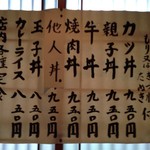 カツ丼 九五〇円
親子丼 八五〇円
牛丼 九五〇円
焼肉丼 九五〇円
他人丼 九五〇円
玉子丼 八五〇円
カレーライス 八五〇円